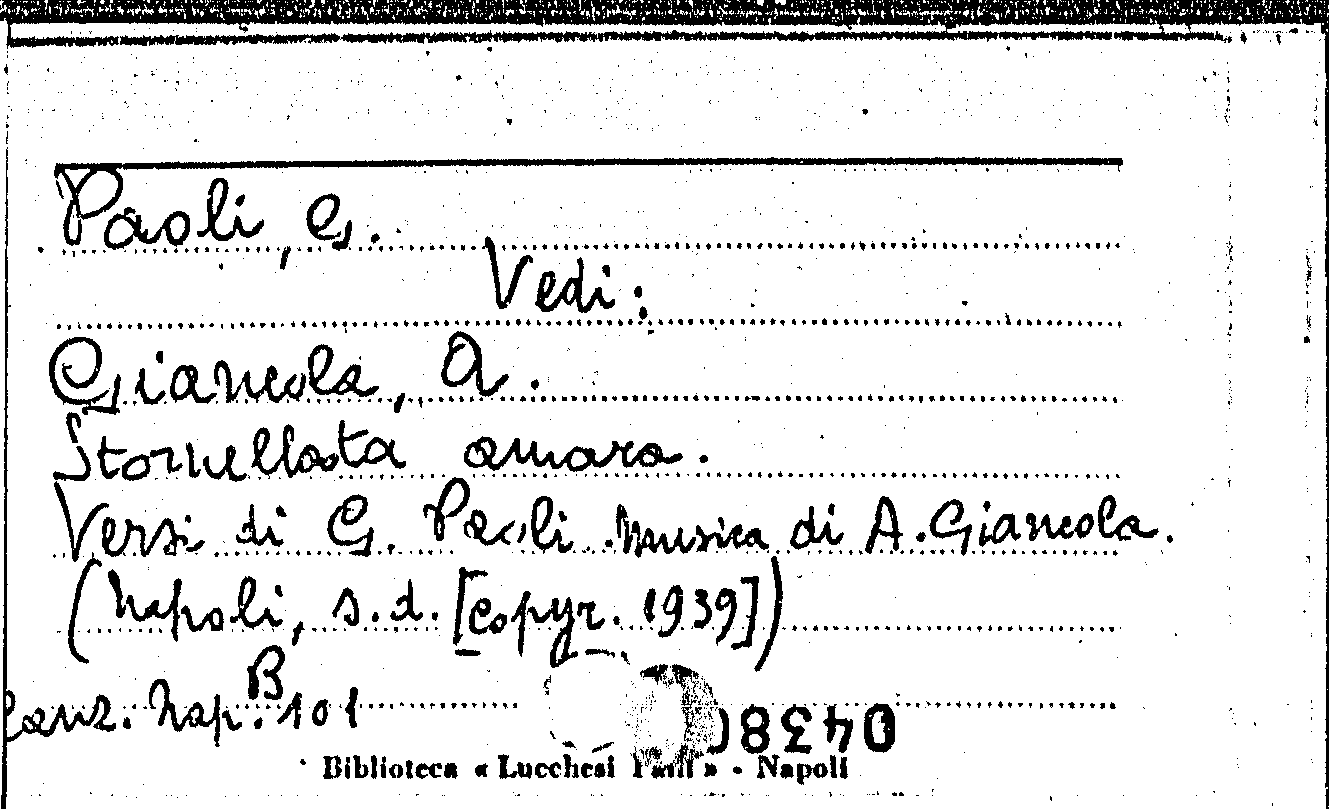 Paoli, G.
Vedi:
Giancola, A.
Stornellata amara.
Versi di G. Paoli. Musica di A. Giancola.
(Napoli, s.d. [copyr. 1939])
Canz. Nap. B. 101
Biblioteca « Lucchesi Palli » - Napoli